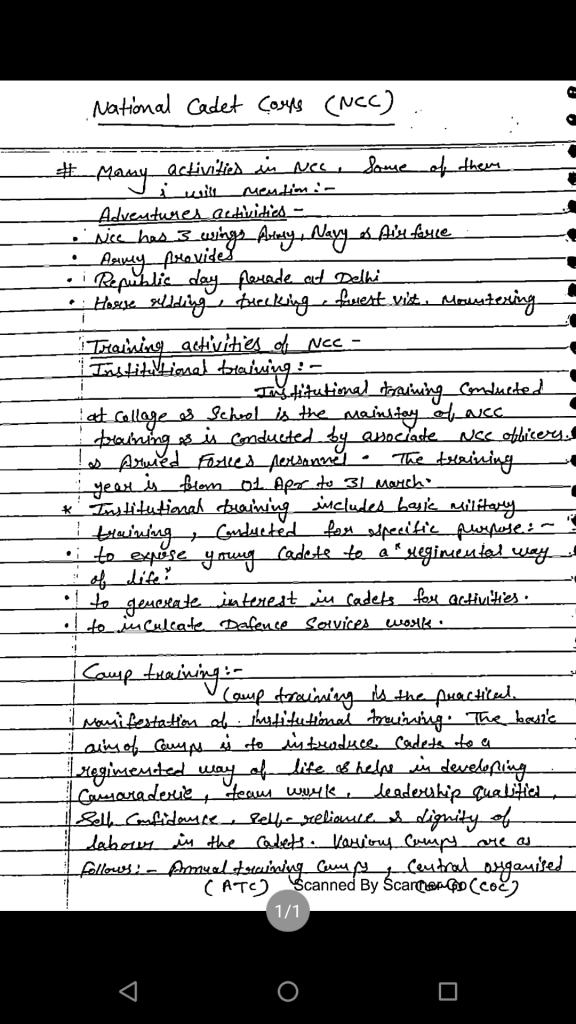 National Cadet Corps (NCC)
# Many activities in NCC, Some of them
i will mention:-
Adventures activities -
• NCC has 3 wings Army, Navy & Air force
• Army provides
• Republic day Parade at Delhi
• Horse ridding, trecking, forest vist. Mountering
Training activities of NCC -
Institutional training:-
Institutional training Conducted
at Collage or School is the mainstay of NCC
training & is Conducted by associate NCC officers
& Armed Forces personnel. The training
year is from 01 Apr to 31 March.
* Institutional training includes basic military
training, Conducted for specific purpose:-
• to expose young Cadets to a "regimental way
of life."
• to generate interest in Cadets for activities.
• to inculcate Defence Services work.
Camp training:-
Camp training is the practical
Manifestation of Institutional training. The basic
aim of Camps is to introduce Cadets to a
regimented way of life & helps in developing
Camaraderie, team work, leadership qualities,
Self Confidance, self-reliance & dignity of
labour in the Cadets. Various Camps are as
follows:- Annual training Camps, Central organised
(ATC) Scanned By Scanner Go (COC)
1/1